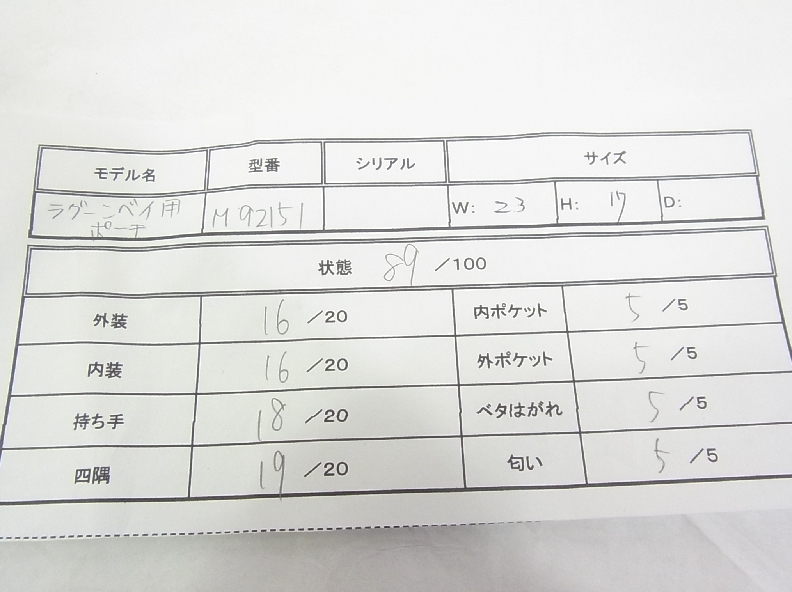 モデル名 型番 シリアル サイズ
ラグーンベイ用 M92151 W: 23 H: 17 D:
ポーチ
状態 89 /100
外装 16 /20 内ポケット 5 /5
内装 16 /20 外ポケット 5 /5
持ち手 18 /20 ベタはがれ 5 /5
四隅 19 /20 匂い 5 /5